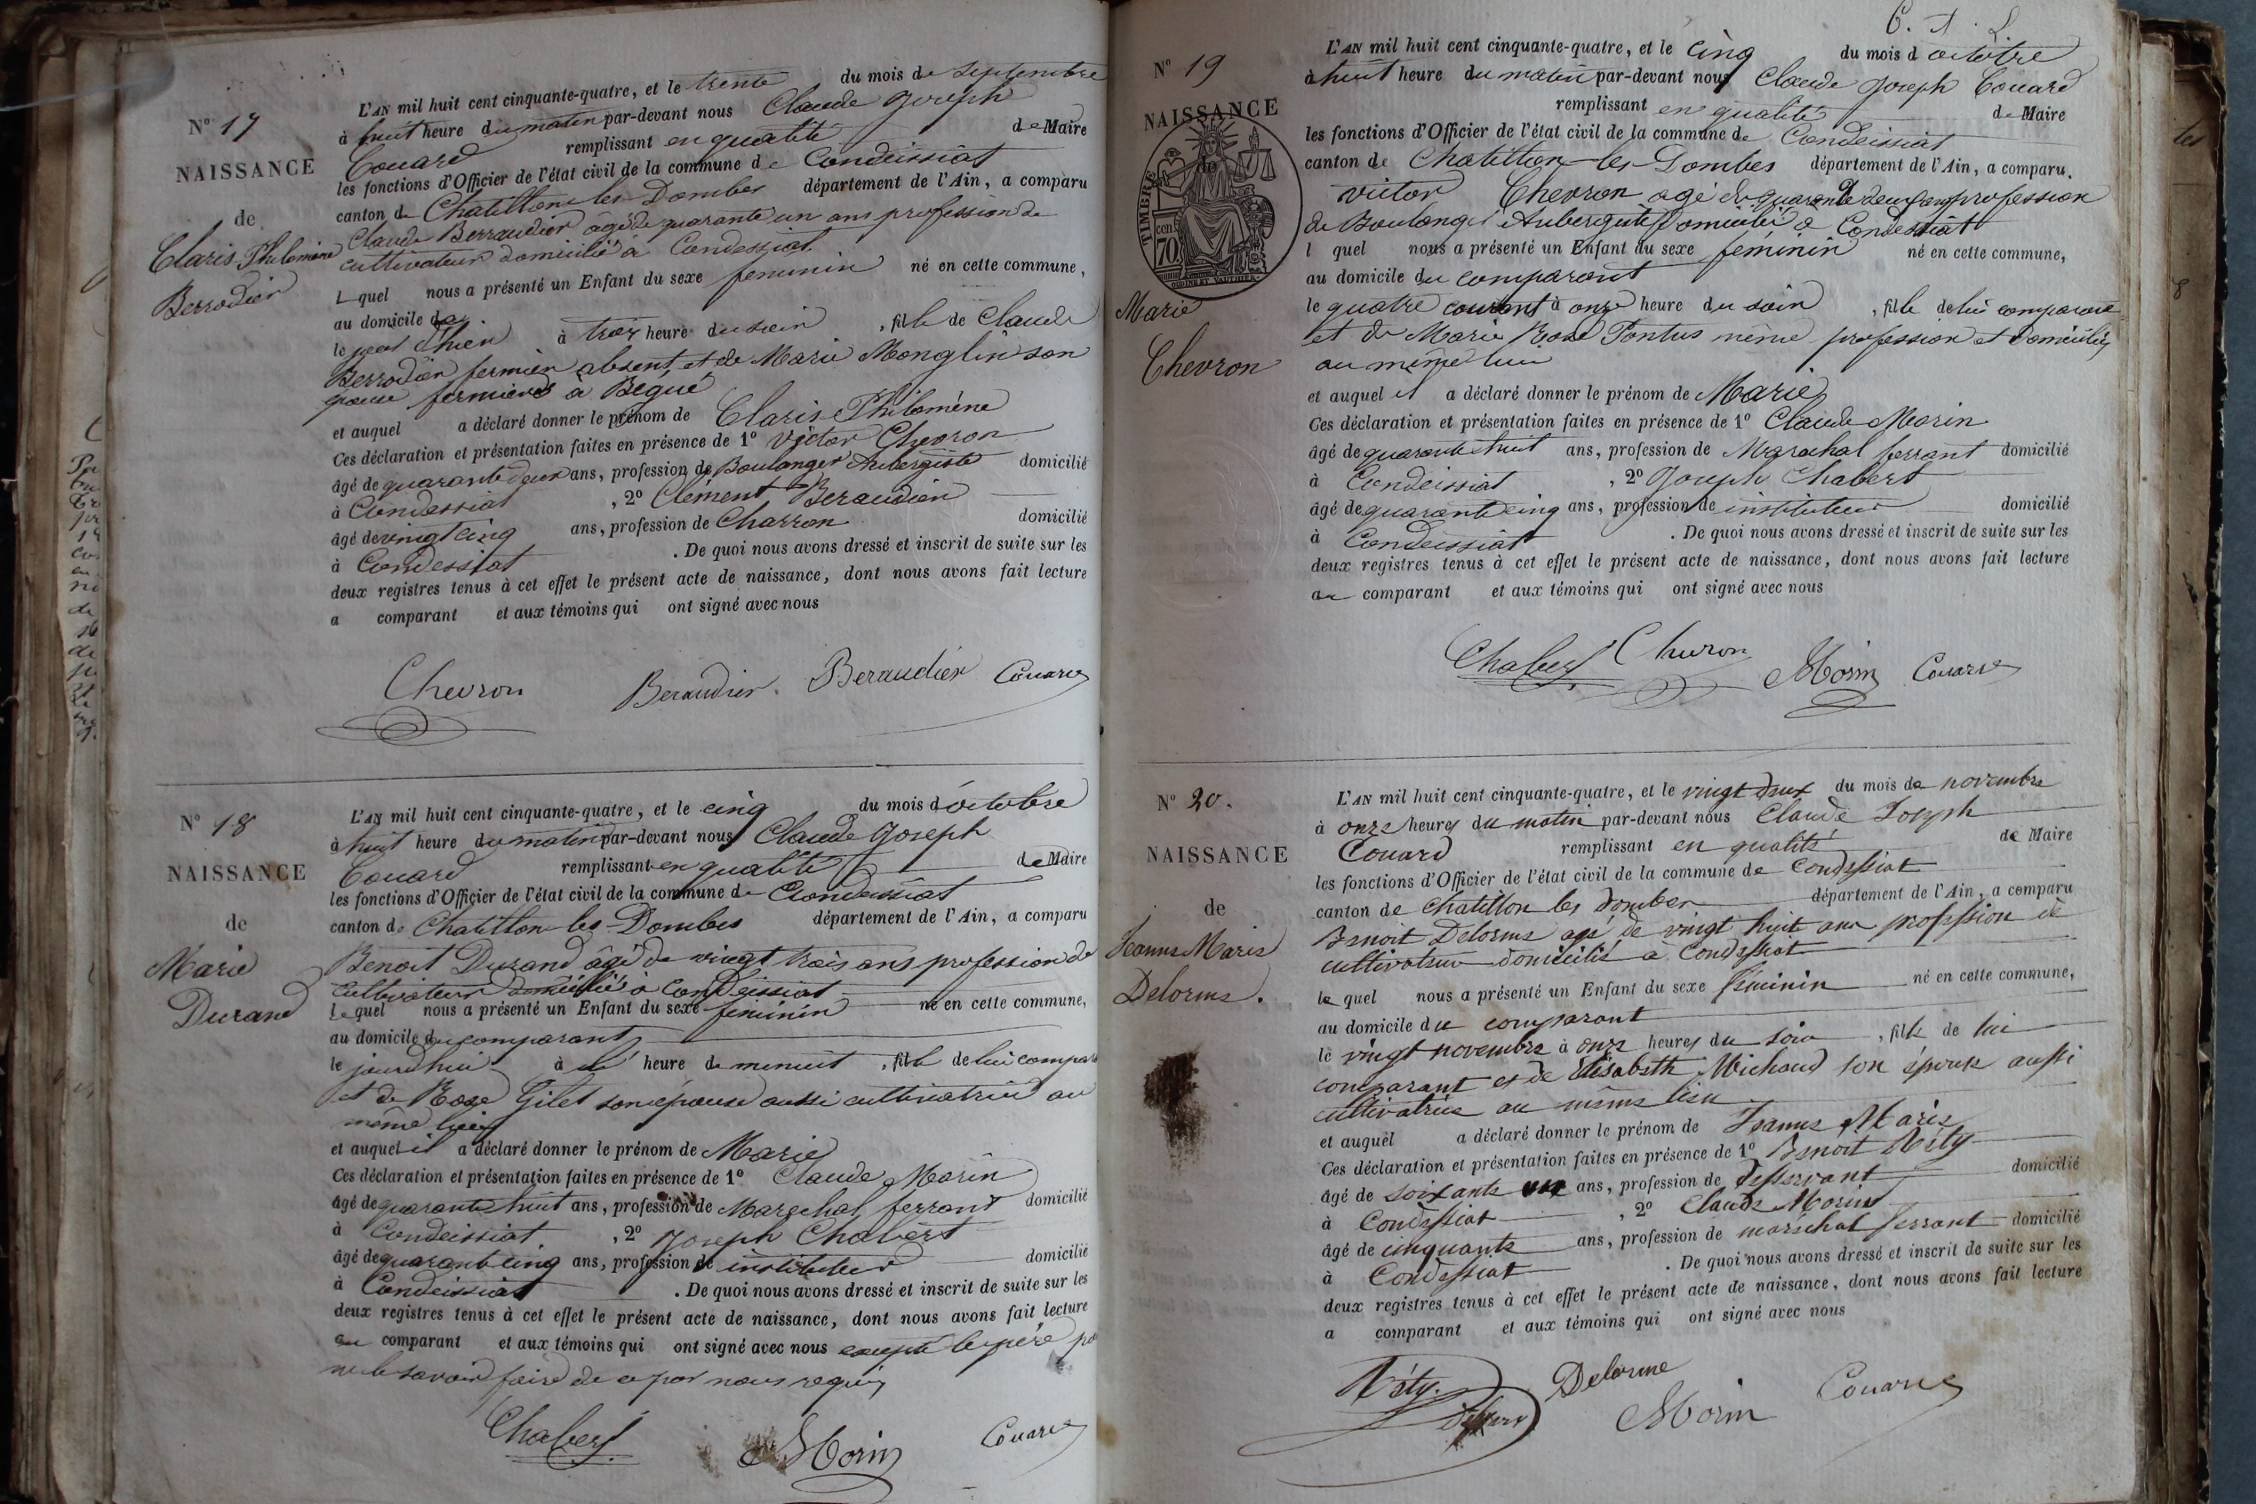 Nº 17
NAISSANCE
de
Claris Philomène
Berrodier
L'AN mil huit cent cinquante-quatre, et le trente du mois de septembre
à huit heure du matin par-devant nous Claude Joseph
Couard remplissant en qualité de Maire
les fonctions d'Officier de l'état civil de la commune de Condeissiat
canton de Chatillon les Dombes département de l'Ain, a comparu
Claude Berraudier âgé de quarante un ans profession de
cultivateur domicilié à Condessiat
Lequel nous a présenté un Enfant du sexe feminin né en cette commune,
au domicile de
le jour d'hier à trois heure du soir, fille de Claude
Berrodier fermier absent et de Marie Monglin son
épouse fermière à Begué
et auquel a déclaré donner le prénom de Claris Philomène
Ces déclaration et présentation faites en présence de 1º Victor Chevron
âgé de quarante deux ans, profession de Boulanger Aubergiste domicilié
à Condessiat, 2º Clément Beraudier
âgé de vingt cinq ans, profession de Charron domicilié
à Condessiat. De quoi nous avons dressé et inscrit de suite sur les
deux registres tenus à cet effet le présent acte de naissance, dont nous avons fait lecture
a comparant et aux témoins qui ont signé avec nous
Chevron Beraudier Beraudier Couard
Nº 18
NAISSANCE
de
Marie
Durand
L'AN mil huit cent cinquante-quatre, et le cinq du mois d'octobre
à huit heure du matin par-devant nous Claude Joseph
Couard remplissant en qualité de Maire
les fonctions d'Officier de l'état civil de la commune de Condeissiat
canton de Chatillon-les-Dombes département de l'Ain, a comparu
Benoit Durand âgé de vingt trois ans profession de
cultivateur domicilié à Condeissiat
Lequel nous a présenté un Enfant du sexe feminin né en cette commune,
au domicile du comparant
le jourd'hui à heure de menuit, fille de lui compara
et de Rose Gilet son épouse aussi cultivatrice au
même lieu
et auquel il a déclaré donner le prénom de Marie
Ces déclaration et présentation faites en présence de 1º Claude Morin
âgé de quarante huit ans, profession de Marechal ferrant domicilié
à Condeissiat, 2º Joseph Chabert
âgé de quarante cinq ans, profession de instituteur domicilié
à Condeissiat. De quoi nous avons dressé et inscrit de suite sur les
deux registres tenus à cet effet le présent acte de naissance, dont nous avons fait lecture
au comparant et aux témoins qui ont signé avec nous excepté le père po
ne le savoir faire de ce par nous requis
Chabert Morin Couard
C. A. L.
Nº 19
NAISSANCE
de
TIMBRE
cen
70
Marie
Chevron
L'AN mil huit cent cinquante-quatre, et le cinq du mois d octobre
à huit heure du matin par-devant nous Claude Joseph Couard
remplissant en qualité de Maire
les fonctions d'Officier de l'état civil de la commune de Condeissiat
canton de Chatillon-les-Dombes département de l'Ain, a comparu.
Victor Chevron agé de quarante deux ans profession
de Boulanger Aubergiste Domicilié à Condessiat
l quel nous a présenté un Enfant du sexe féminin né en cette commune,
au domicile du comparant
le quatre courant à onze heure du soir, fille de lui comparant
et de Marie Rose Pontus même profession et Domiciliés
au même lieu
et auquel il a déclaré donner le prénom de Marie
Ces déclaration et présentation faites en présence de 1º Claude Morin
âgé de quarante huit ans, profession de Marechal ferrant domicilié
à Condeissiat, 2º Joseph Chabert
âgé de quarante cinq ans, profession de instituteur domicilié
à Condeissiat. De quoi nous avons dressé et inscrit de suite sur les
deux registres tenus à cet effet le présent acte de naissance, dont nous avons fait lecture
au comparant et aux témoins qui ont signé avec nous
Chabert Chevron Morin Couard
Nº 20.
NAISSANCE
de
Jeanne Marie
Delorme.
L'AN mil huit cent cinquante-quatre, et le vingt deux du mois de novembre
à onze heures du matin par-devant nous Claude Joseph
Couard remplissant en qualité de Maire
les fonctions d'Officier de l'état civil de la commune de Condessiat
canton de Chatillon les Dombes département de l'Ain, a comparu
Benoit Delorme agé de vingt huit ans profession de
cultivateur domicilié à Condessiat
le quel nous a présenté un Enfant du sexe féminin né en cette commune,
au domicile du comparant
le vingt novembre à onze heures du soir, fille de lui
comparant et de Elisabeth Michaud son épouse aussi
cultivatrice au même lieu
et auquel a déclaré donner le prénom de Jeanne Marie
Ces déclaration et présentation faites en présence de 1º Benoit Néty
âgé de soixante ans, profession de desservant domicilié
à Condessiat, 2º Claude Morin
âgé de cinquante ans, profession de maréchal ferrant domicilié
à Condessiat. De quoi nous avons dressé et inscrit de suite sur les
deux registres tenus à cet effet le présent acte de naissance, dont nous avons fait lecture
a comparant et aux témoins qui ont signé avec nous
Néty. Delorme Couard
Morin